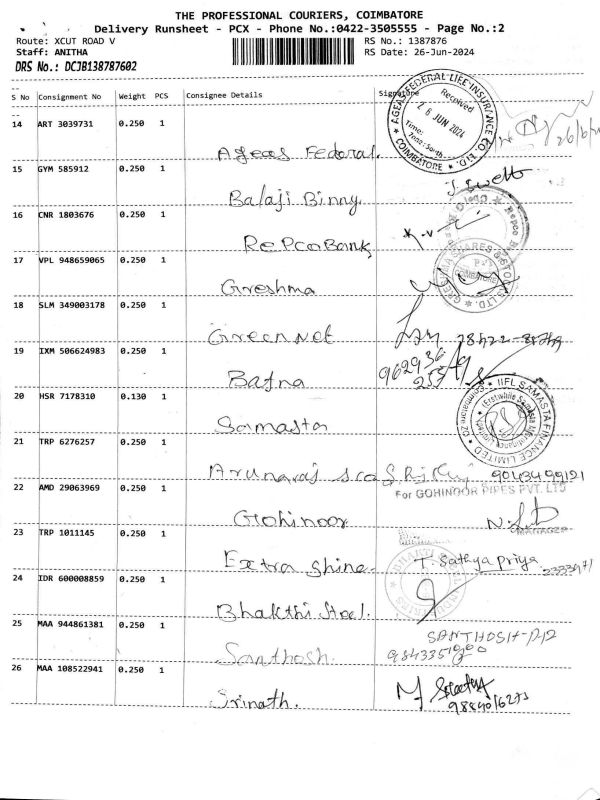 THE PROFESSIONAL COURIERS, COIMBATORE
Delivery Runsheet - PCX - Phone No.:0422-3505555 - Page No.:2
Route: XCUT ROAD V RS No.: 1387876
Staff: ANITHA RS Date: 26-Jun-2024
DRS No.: DCJB138787602
S No Consignment No Weight PCS Consignee Details Signature
14 ART 3039731 0.250 1
Ageas Federal.
AGEAS FEDERAL LIFE INSURANCE CO. LTD.
Received
26 JUN 2024
Time:
Zone: South
COIMBATORE
15 GYM 585912 0.250 1
Balaji Binny.
16 CNR 1803676 0.250 1
RePcoBank
17 VPL 948659065 0.250 1
Greshma
COIMBATORE
18 SLM 349003178 0.250 1
Greennet
19 IXM 506624983 0.250 1
Bafna
962936
20 HSR 7178310 0.130 1
Samasta
IIFL SAMASTA FINANCE LIMITED
21 TRP 6276257 0.250 1
Arunaraj
22 AMD 29063969 0.250 1
For GOHINOOR PIPES PVT. LTD
Gohinoor
MANAGER
23 TRP 1011145 0.250 1
Extra Shine.
T. Sathya Priya
24 IDR 600008859 0.250 1
Bhakthi Steel.
25 MAA 944861381 0.250 1
SANTHOSH
Santhosh.
26 MAA 108522941 0.250 1
Srinath.